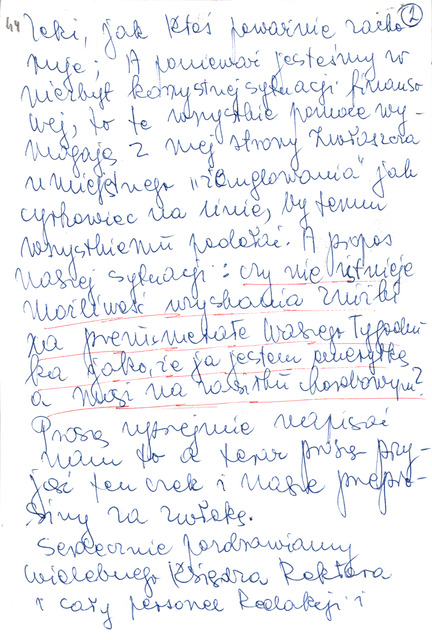 44
2
leki, jak ktoś poważnie zacho
ruje; A ponieważ jesteśmy w
niezbyt korzystnej sytuacji finanso
wej, to te wszystkie pomoce wy-
magają z mej strony zwłaszcza
umiejętnego „żonglowania" jak
cyrkowiec na linie, by temu
wszystkiemu podołać. A propos
naszej sytuacji: czy nie istnieje
możliwość uzyskania zniżki
na prenumeratę Waszego Tygodni
ka jako, że ja jestem emerytką
a mąż na zasiłku chorobowym?
Proszę uprzejmie napisać
nam to a teraz proszę przy-
jąć ten czek i nasze przepro-
siny za zwłokę.
Serdecznie pozdrawiamy
Wielebnego Księdza Rektora
i cały personel Redakcji i